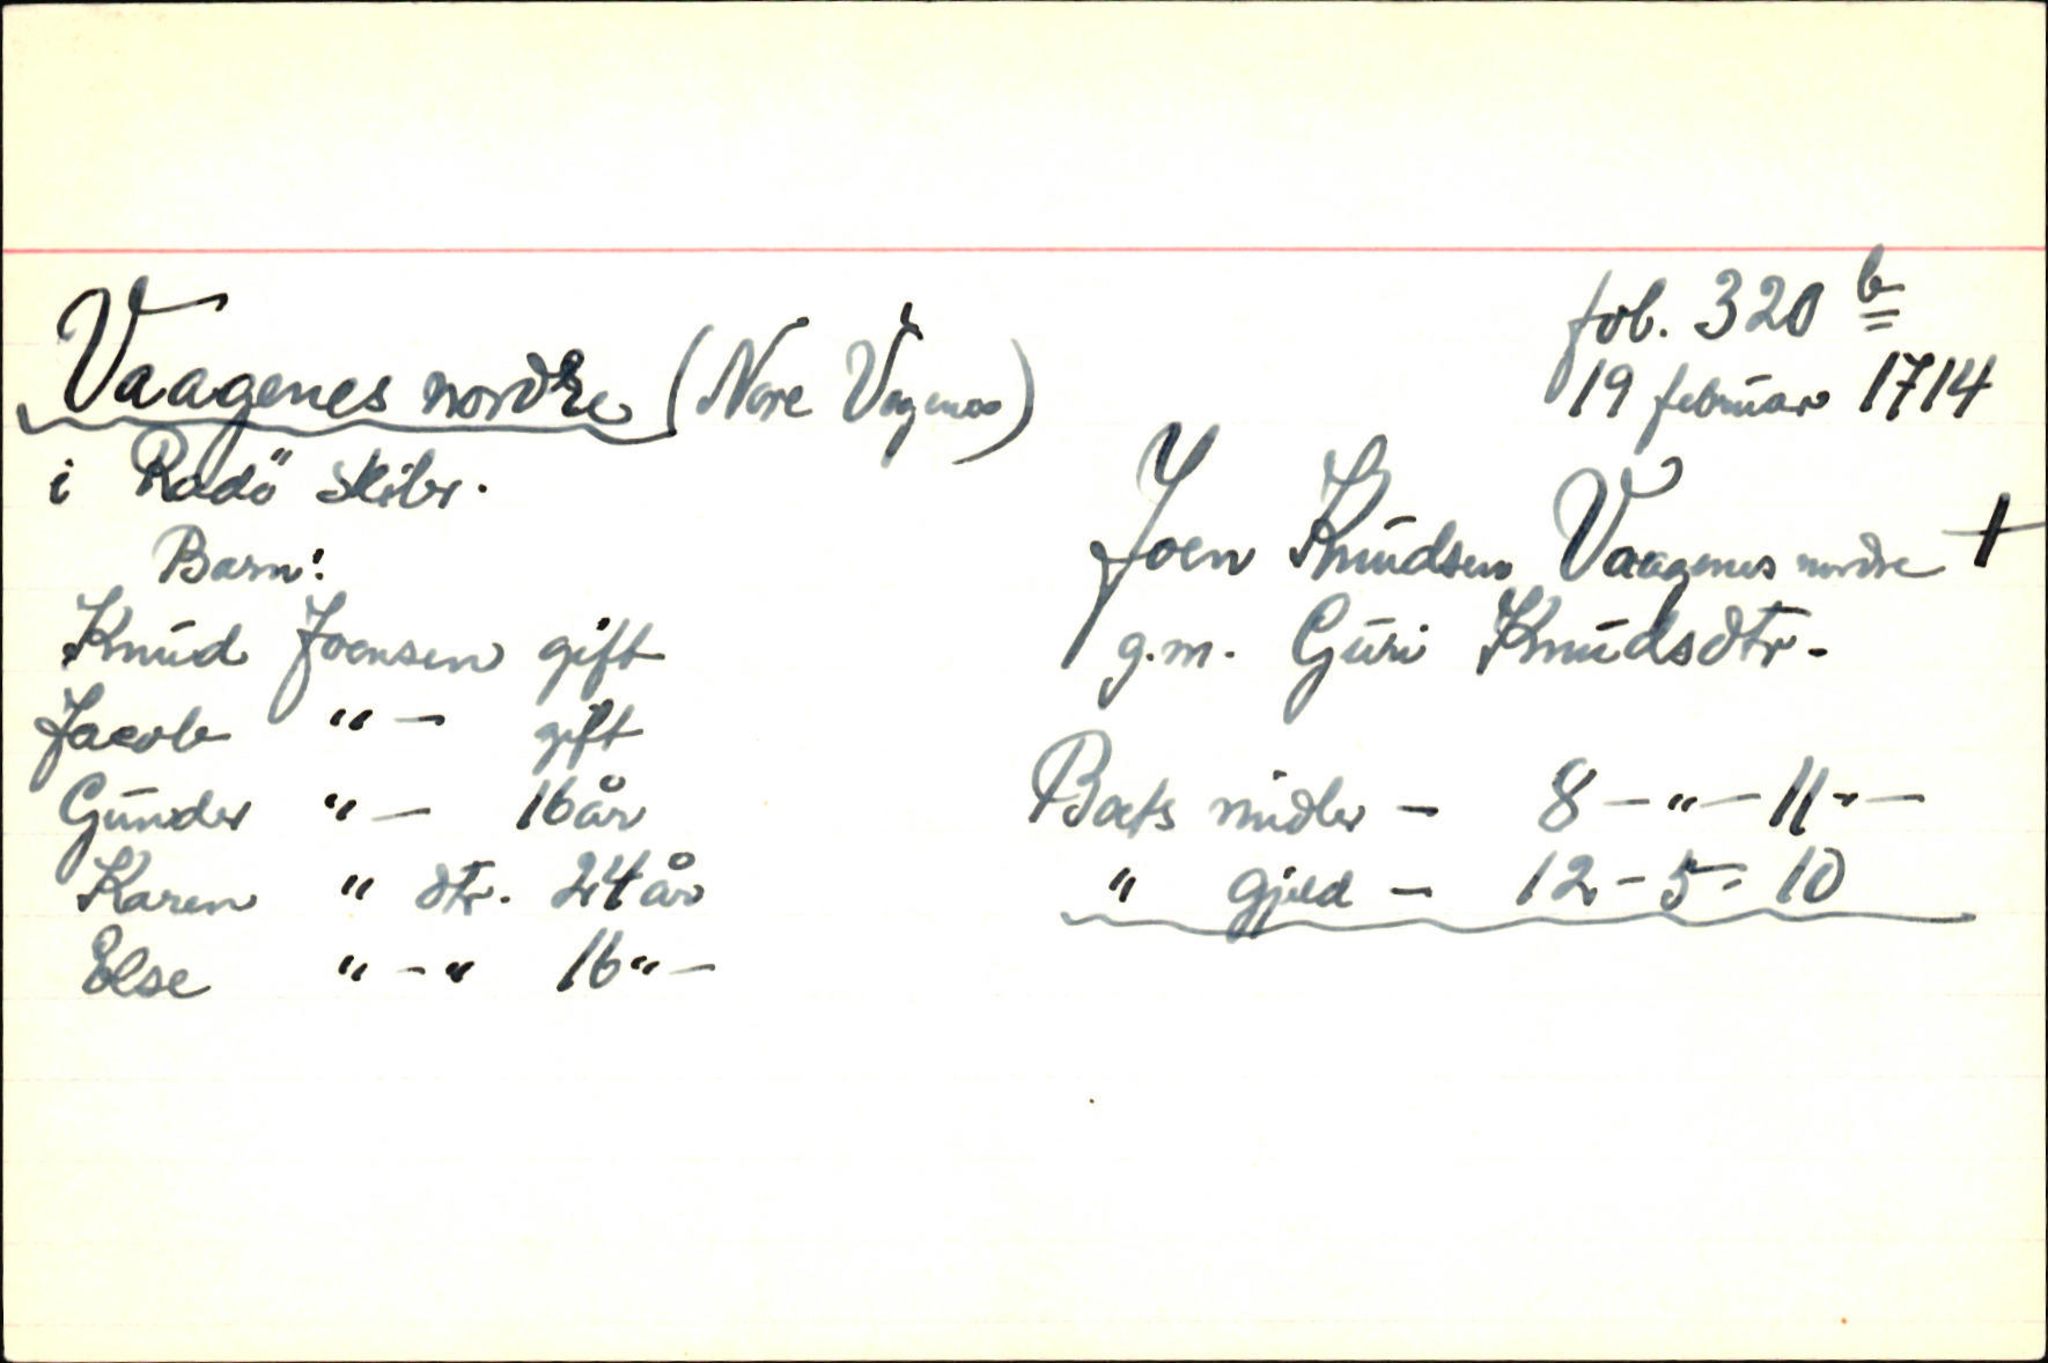 fol. 320 b
19 februar 1714
Vaagenes nordre (Nore Vågenes)
i Radö skibr.
Joen Knudsen Vaagenes nordre +
g.m. Guri Knudsdtr.
Barn:
Knud Joensen gift
Jacob " – gift
Gunder " – 16 år
Karen " dtr. 24 år
Else " – " 16 " –
Boets midler – 8 – " – 11 " –
" gjeld – 12 – 5 – 10